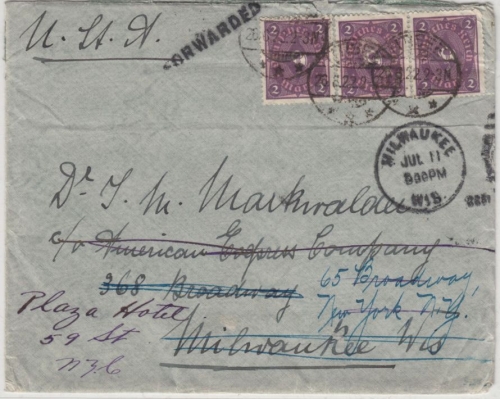 U. S. A.
FORWARDED
2 2 2 2
MILWAUKEE
JUL 11
WIS
Dr I. M. Markwalder
c/o American Express Company
368 Broadway
65 Broadway,
New York N.Y.
Milwaukee Wis
Plaza Hotel
59 St
NYC